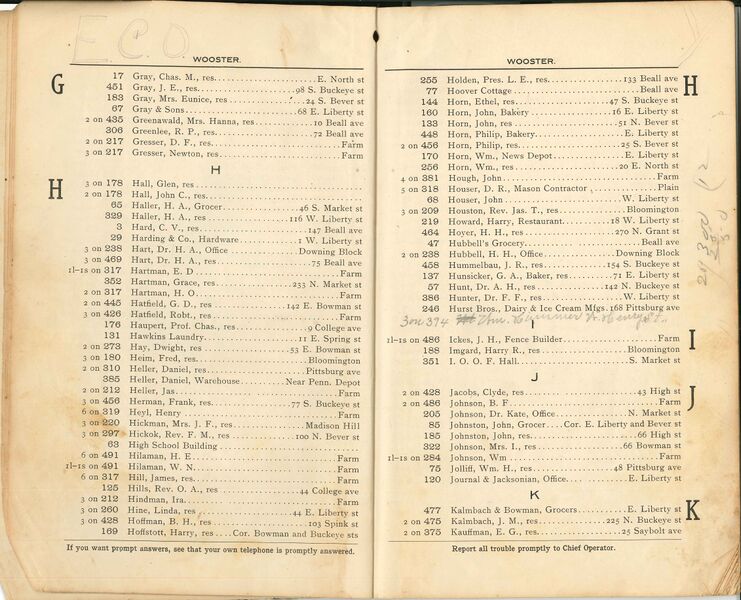 E.C.O
WOOSTER.
G
17 Gray, Chas. M., res. E. North st
451 Gray, J. E., res. 98 S. Buckeye st
183 Gray, Mrs. Eunice, res 24 S. Bever st
67 Gray & Sons 68 E. Liberty st
2 on 435 Greenawald, Mrs. Hanna, res 10 Beall ave
306 Greenlee, R. P., res. 72 Beall ave
2 on 217 Gresser, D. F., res. Farm
3 on 217 Gresser, Newton, res. Farm
H
H
3 on 178 Hall, Glen, res
2 on 178 Hall, John C., res.
65 Haller, H. A., Grocer 46 S. Market st
329 Haller, H. A., res 116 W. Liberty st
3 Hard, C. V., res 147 Beall ave
29 Harding & Co., Hardware 1 W. Liberty st
3 on 238 Hart, Dr. H. A., Office Downing Block
3 on 469 Hart, Dr. H. A., res 75 Beall ave
1l-1s on 317 Hartman, E. D Farm
352 Hartman, Grace, res 233 N. Market st
2 on 317 Hartman, H. O. Farm
2 on 445 Hatfield, G. D., res 142 E. Bowman st
3 on 426 Hatfield, Robt., res Farm
176 Haupert, Prof. Chas., res 9 College ave
131 Hawkins Laundry 11 E. Spring st
2 on 273 Hay, Dwight, res 53 E. Bowman st
3 on 180 Heim, Fred, res. Bloomington
2 on 310 Heller, Daniel, res Pittsburg ave
385 Heller, Daniel, Warehouse Near Penn. Depot
2 on 212 Heller, Jas Farm
3 on 456 Herman, Frank, res. 77 S. Buckeye st
6 on 319 Heyl, Henry Farm
3 on 220 Hickman, Mrs. J. F., res Madison Hill
3 on 297 Hickok, Rev. F. M., res 100 N. Bever st
63 High School Building
6 on 491 Hilaman, H. E Farm
1l-1s on 491 Hilaman, W. N. Farm
6 on 317 Hill, James, res Farm
125 Hills, Rev. O. A., res 44 College ave
3 on 212 Hindman, Ira. Farm
3 on 260 Hine, Linda, res 44 E. Liberty st
3 on 428 Hoffman, B. H., res 103 Spink st
169 Hoffstott, Harry, res Cor. Bowman and Buckeye sts
If you want prompt answers, see that your own telephone is promptly answered.
WOOSTER.
H
255 Holden, Pres. L. E., res. 133 Beall ave
77 Hoover Cottage Beall ave
144 Horn, Ethel, res 47 S. Buckeye st
160 Horn, John, Bakery 16 E. Liberty st
133 Horn, John, res 51 N. Bever st
448 Horn, Philip, Bakery. E. Liberty st
2 on 456 Horn, Philip, res 25 S. Bever st
170 Horn, Wm., News Depot E. Liberty st
256 Horn, Wm., res 20 E. North st
4 on 381 Hough, John Farm
5 on 318 Houser, D. R., Mason Contractor Plain
68 Houser, John W. Liberty st
3 on 209 Houston, Rev. Jas. T., res Bloomington
219 Howard, Harry, Restaurant. 18 W. Liberty st
464 Hoyer, H. H., res 270 N. Grant st
47 Hubbell's Grocery. Beall ave
2 on 238 Hubbell, H. H., Office Downing Block
458 Hummelbau, J. R., res 154 S. Buckeye st
137 Hunsicker, G. A., Baker, res 71 E. Liberty st
57 Hunt, Dr. A. H., res 142 N. Buckeye st
386 Hunter, Dr. F. F., res W. Liberty st
246 Hurst Bros., Dairy & Ice Cream Mfgs. 168 Pittsburg ave
3 on 394
I
I
1l-1s on 486 Ickes, J. H., Fence Builder Farm
188 Imgard, Harry R., res Bloomington
351 I. O. O. F. Hall. S. Market st
J
J
2 on 428 Jacobs, Clyde, res 43 High st
2 on 486 Johnson, B. F Farm
205 Johnson, Dr. Kate, Office N. Market st
85 Johnston, John, Grocer Cor. E. Liberty and Bever st
185 Johnston, John, res. 66 High st
322 Johnson, Mrs. I., res 66 Bowman st
1l-1s on 284 Johnson, Wm Farm
75 Jolliff, Wm. H., res 48 Pittsburg ave
120 Journal & Jacksonian, Office E. Liberty st
K
K
477 Kalmbach & Bowman, Grocers E. Liberty st
2 on 475 Kalmbach, J. M., res 225 N. Buckeye st
2 on 375 Kauffman, E. G., res 25 Saybolt ave
Report all trouble promptly to Chief Operator.